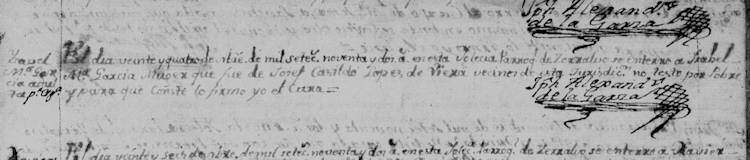 Jph Alexandro
de la Garza
Ysabel El dia veinte y quatro de obre. de mil setec. noventa y dos as. en esta Yglecia Parroql. de Zerralvo se enterro a Ysabel
Ma. Gar Ma. Garcia Muger que fue de Josef Casildo Lopes, de Viexa vecinos de esta Jurisdicn. no testo por Pobre
cia y para que Conste lo firmo yo el Cura =
Jph Alexandro
de la Garza
El dia veinte y seis de obre. de mil setec. noventa y dos as. en esta Yglec. Parroql. de Zerralvo se enterro a Xavier